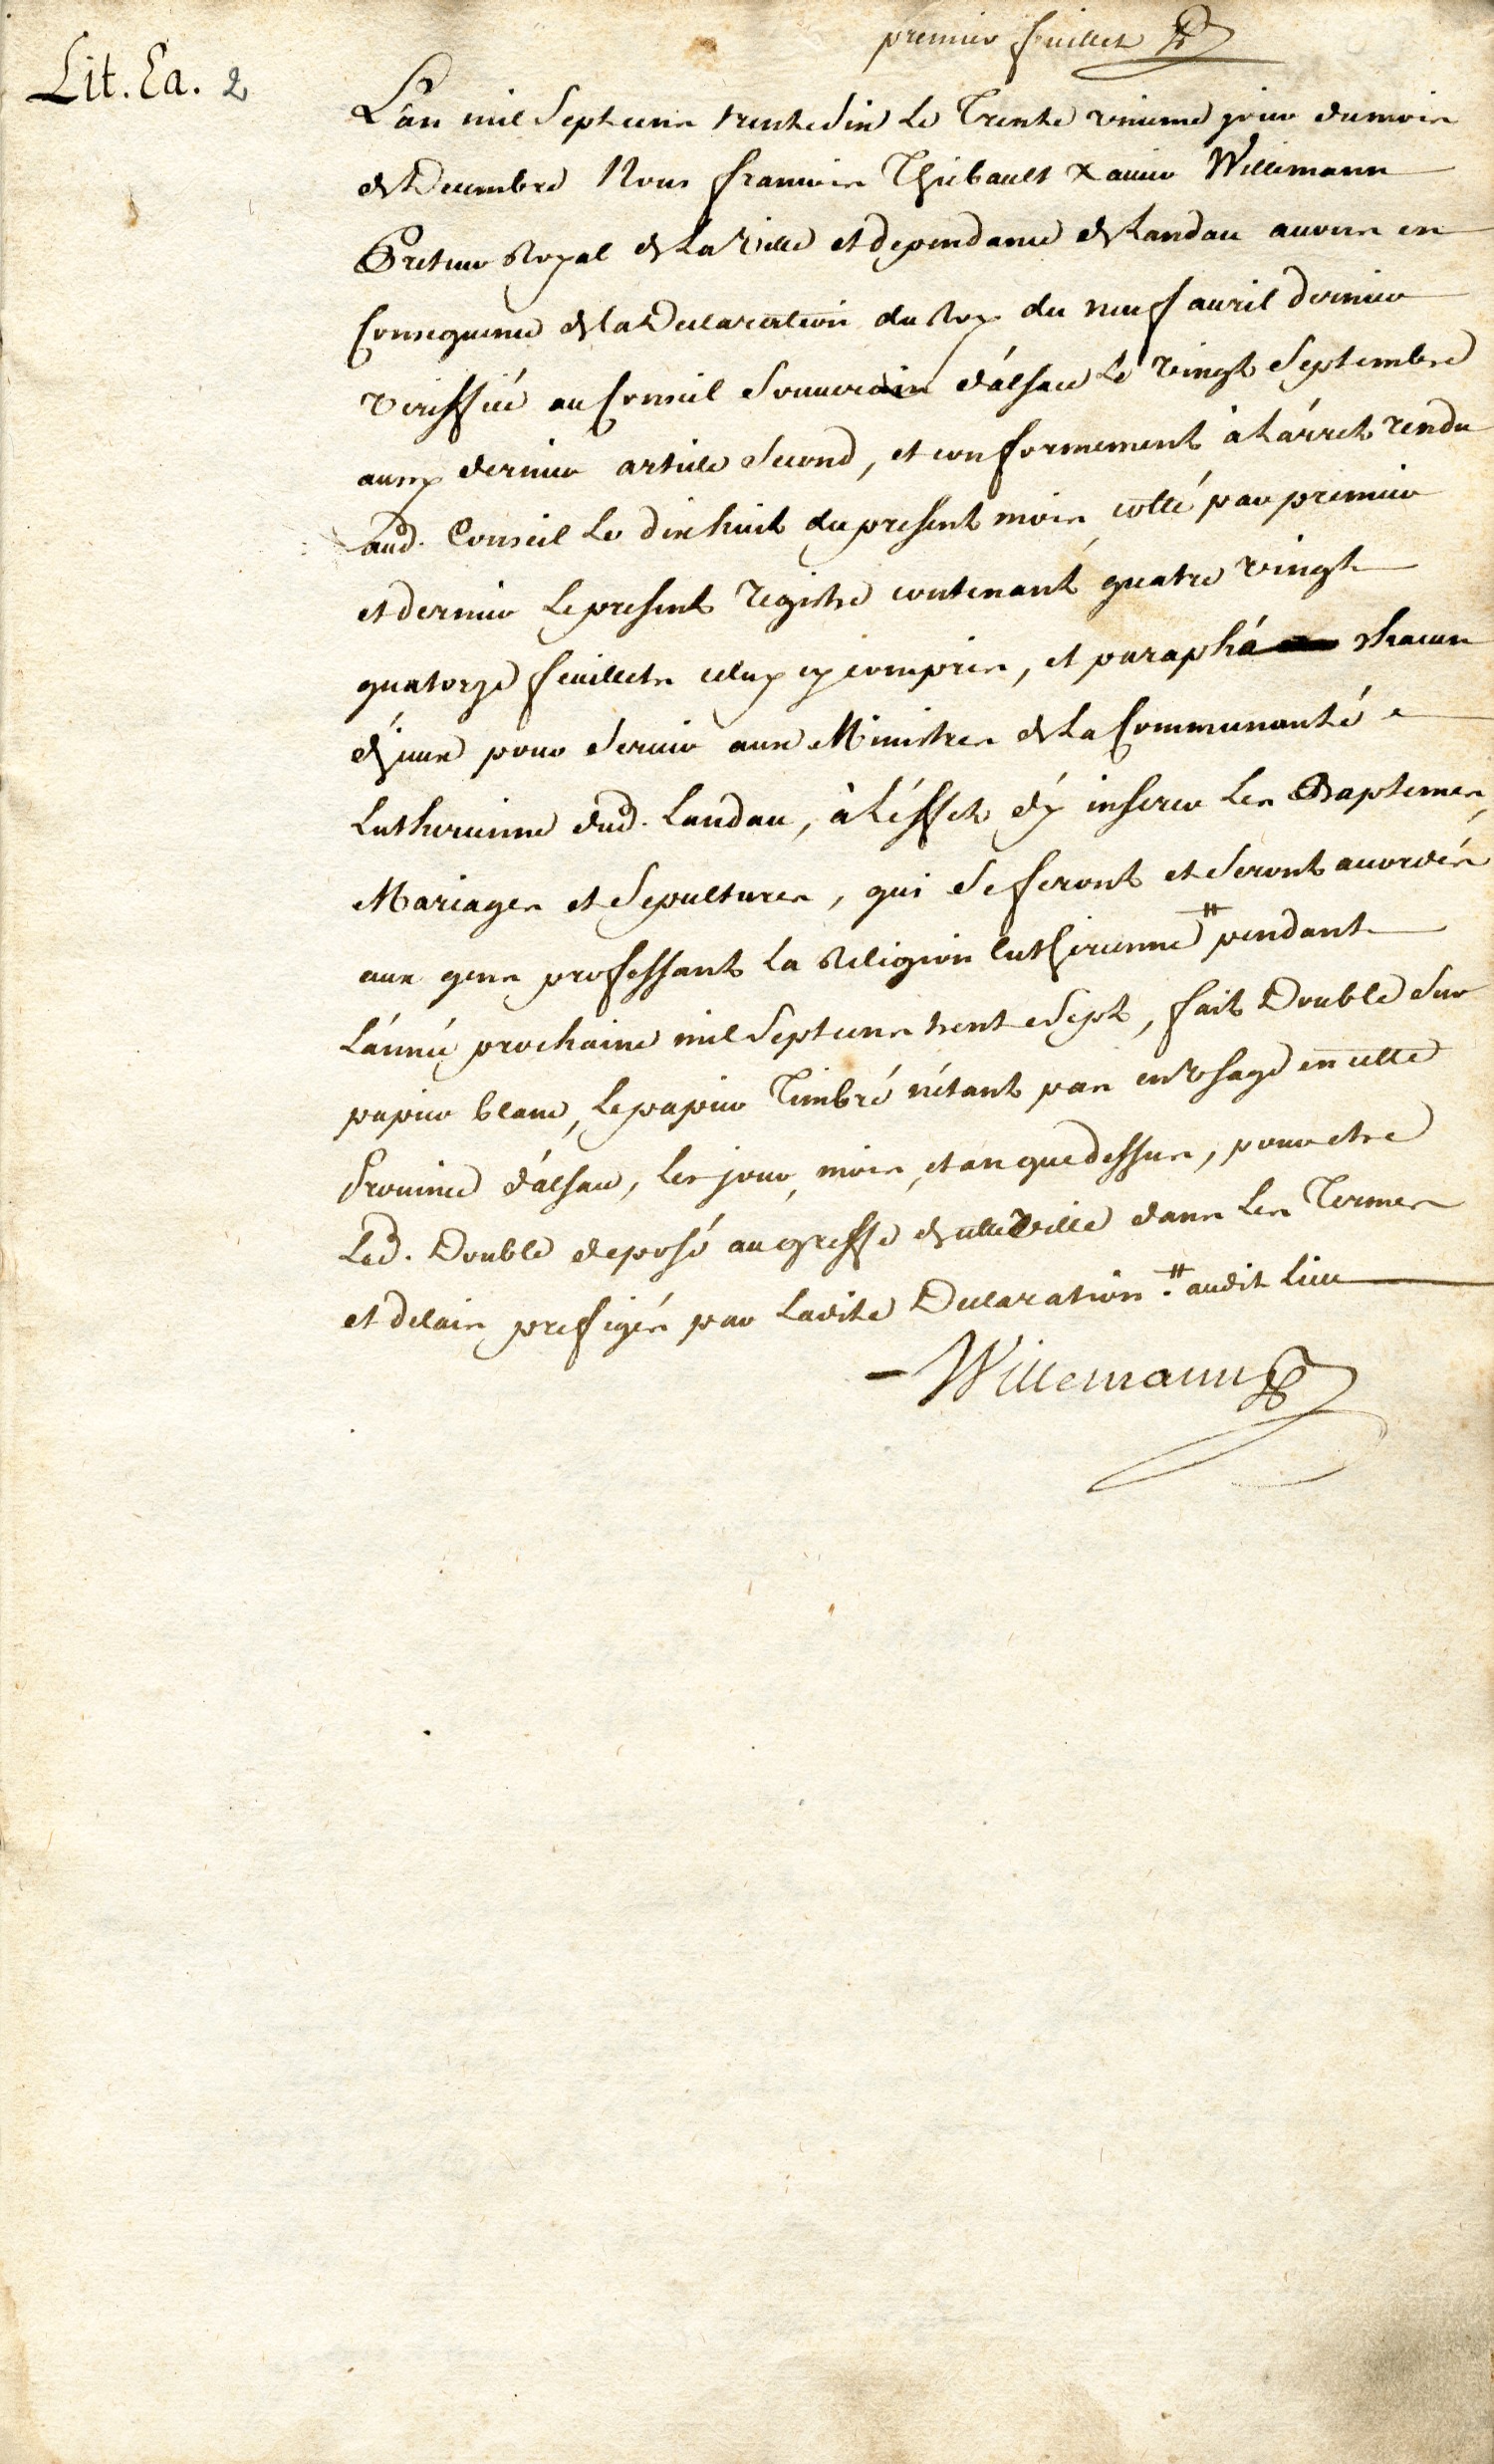 premier feuillet
Lit. Ea. 2
L'an mil Septcens trente Six Le Trente vnieme jour du mois
de Decembre Nous francois Thiebault Xavier Willemann
Preteur Royal de La Ville et dependance de Landau avons en
Consequence de la Declaration du Roy du neuf avril dernier
veriffiée au Conseil Souverain d'alsace Le vingt Septembre
aussy dernier article Second, et conformement à L'árrét rendu
aud. Conseil Le dix huit du present mois, cotté par premier
et dernier Le present registre contenant quatre vingt
quatorze feuillets celuy cy compris, et paraphé chacun
d'jceux pour Servir aux Ministres de La Communauté
Lutherienne dud. Landau, à L'éffet d'y inserer Les Baptemes,
Mariages et Sepultures, qui Se feront et Seront accordés
aux gens professant La Religion lutherienne # pendant
L'année prochaine mil Septcens trente Sept, fait Double Sur
papier blanc, Le papier Timbré n'étant pas en Vsage en cette
Province d'alsace, Les jour, mois, et an que dessus, pour etre
Led. Double deposé au greffe de cette Ville dans Les Termes
et delais prefigés par Ladite Declaration. # audit Lieu
Willemann